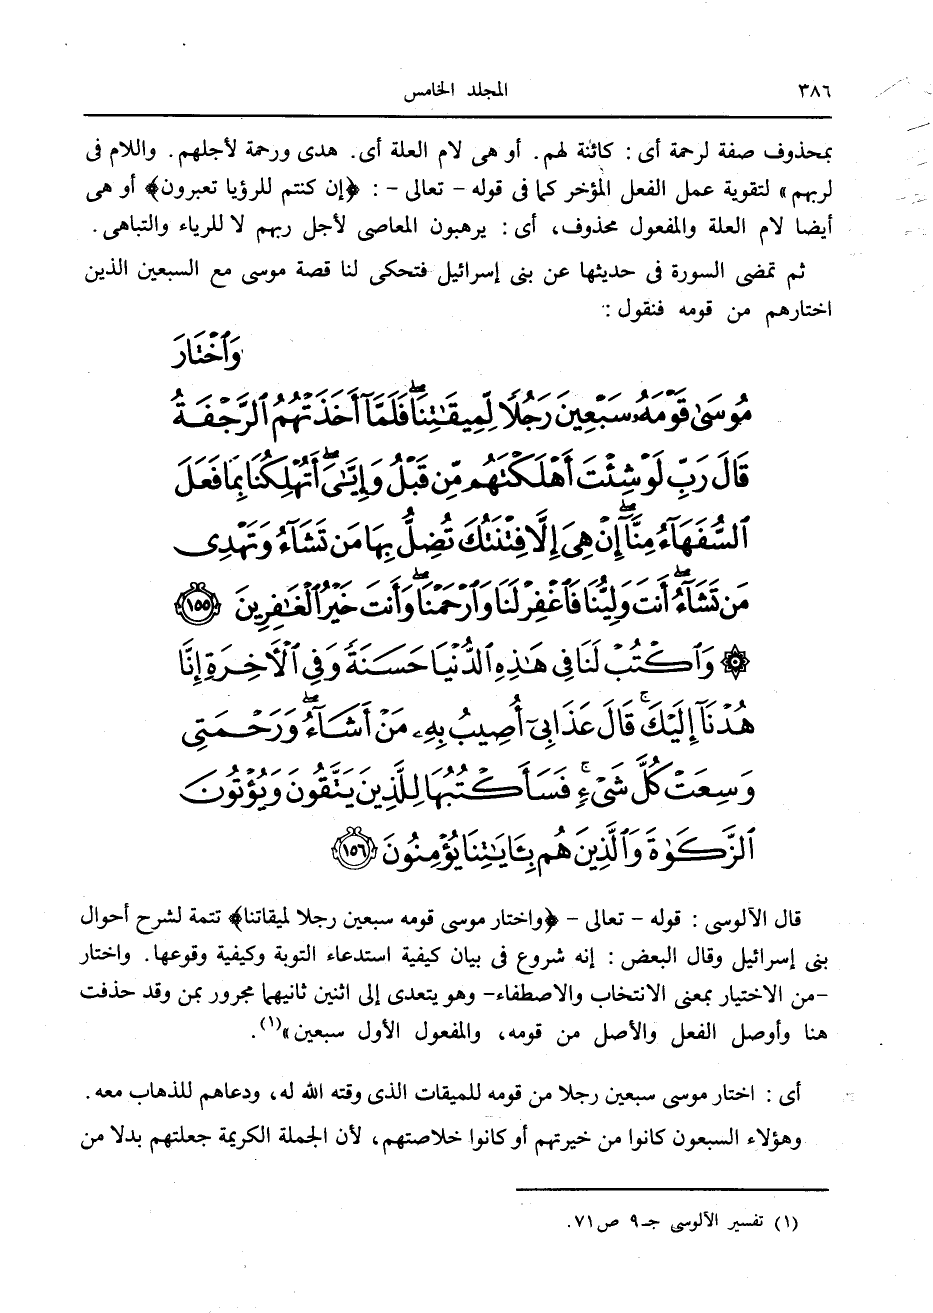 ٣٨٦ المجلد الخامس
بمحذوف صفة لرحمة أى : كائنة لهم. أو هى لام العلة أى. هدى ورحمة لأجلهم. واللام فى
لربهم» لتقوية عمل الفعل المؤخر كما فى قوله - تعالى - : ﴿إن كنتم للرؤيا تعبرون﴾ أو هى
أيضا لام العلة والمفعول محذوف، أى : يرهبون المعاصى لأجل ربهم لا للرياء والتباهى.
ثم تمضى السورة فى حديثها عن بنى إسرائيل فتحكى لنا قصة موسى مع السبعين الذين
اختارهم من قومه فنقول :
وَٱخْتَارَ
مُوسَىٰ قَوْمَهُۥ سَبْعِينَ رَجُلًا لِّمِيقَٰتِنَا ۖ فَلَمَّآ أَخَذَتْهُمُ ٱلرَّجْفَةُ
قَالَ رَبِّ لَوْ شِئْتَ أَهْلَكْتَهُم مِّن قَبْلُ وَإِيَّٰىَ ۖ أَتُهْلِكُنَا بِمَا فَعَلَ
ٱلسُّفَهَآءُ مِنَّآ ۖ إِنْ هِىَ إِلَّا فِتْنَتُكَ تُضِلُّ بِهَا مَن تَشَآءُ وَتَهْدِى
مَن تَشَآءُ ۖ أَنتَ وَلِيُّنَا فَٱغْفِرْ لَنَا وَٱرْحَمْنَا ۖ وَأَنتَ خَيْرُ ٱلْغَٰفِرِينَ ١٥٥
۞ وَٱكْتُبْ لَنَا فِى هَٰذِهِ ٱلدُّنْيَا حَسَنَةً وَفِى ٱلْأَخِرَةِ إِنَّا
هُدْنَآ إِلَيْكَ ۚ قَالَ عَذَابِىٓ أُصِيبُ بِهِۦ مَنْ أَشَآءُ ۖ وَرَحْمَتِى
وَسِعَتْ كُلَّ شَىْءٍ ۚ فَسَأَكْتُبُهَا لِلَّذِينَ يَتَّقُونَ وَيُؤْتُونَ
ٱلزَّكَوٰةَ وَٱلَّذِينَ هُم بِـَٔايَٰتِنَا يُؤْمِنُونَ ١٥٦
قال الآلوسى : قوله - تعالى - ﴿واختار موسى قومه سبعين رجلا لميقاتنا﴾ تتمة لشرح أحوال
بنى إسرائيل وقال البعض : إنه شروع فى بيان كيفية استدعاء التوبة وكيفية وقوعها. واختار
-من الاختيار بمعنى الانتخاب والاصطفاء- وهو يتعدى إلى اثنين ثانيهما مجرور بمن وقد حذفت
هنا وأوصل الفعل والأصل من قومه، والمفعول الأول سبعين»(١).
أى : اختار موسى سبعين رجلا من قومه للميقات الذى وقته الله له، ودعاهم للذهاب معه.
وهؤلاء السبعون كانوا من خيرتهم أو كانوا خلاصتهم، لأن الجملة الكريمة جعلتهم بدلا من
(١) تفسير الآلوسى جـ٩ ص٧١.